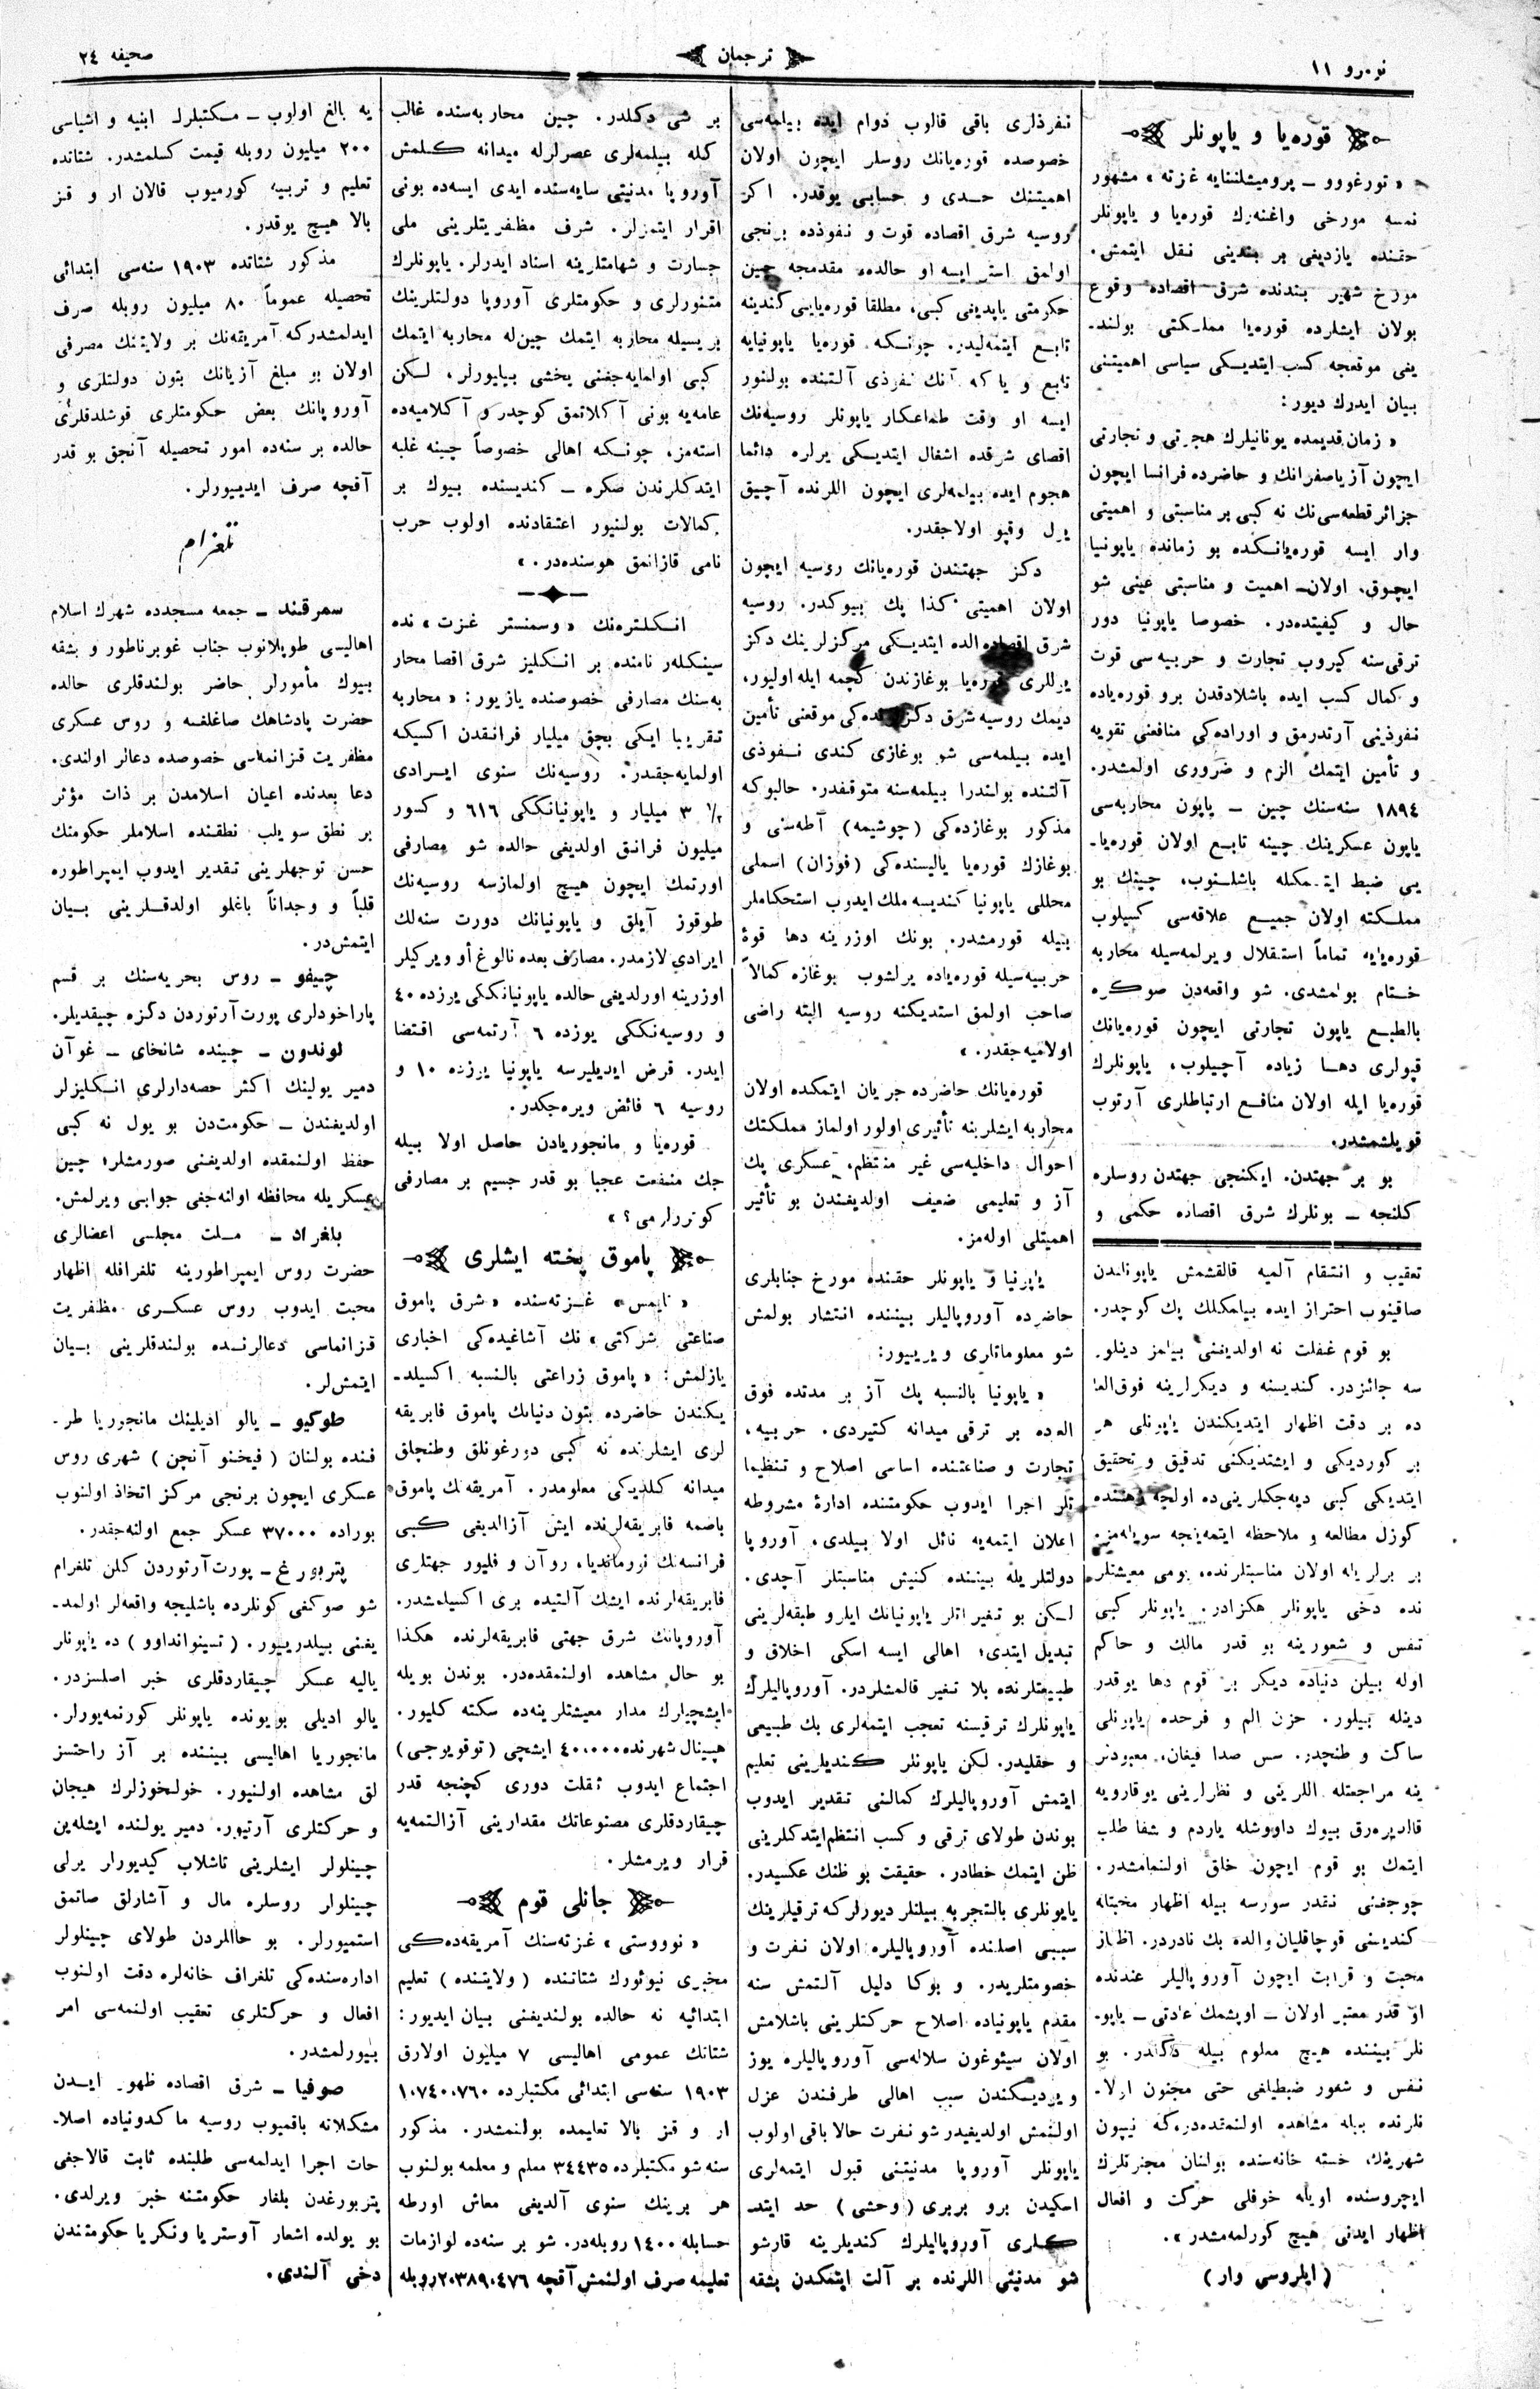 نومرو ١١
ترجمان
صحیفه ٢٤
قوره‌یا و یاپونلر
« تورغووو ـ پرومیشلننایه غزته » مشهور
نمسه مورخی واغنه‌رك قوره‌یا و یاپونلر
حقنده یازدیغی بر بندینی نقل ایتمش.
مورخ شهیر بندنده شرق اقصاده وقوع
بولان ایشلرده قوره‌یا مملكتی بولند‌ـ
یغی موقعجه كسب ایتدیكی سیاسی اهمیتنی
بیان ایدرك دیور:
« زمان قدیمده یونانیلرك هجرتی و تجارتی
ایچون آزیاصغرانك و حاضرده فرانسا ایچون
جزائر قطعه‌سی‌نك نه كبی بر مناسبتی و اهمیتی
وار ایسه قوره‌یانكده بو زمانده یاپونیا
ایچون، اولان‌ـ اهمیت و مناسبتی عینی شو
حال و كیفیتده‌در. خصوصا یاپونیا دور
ترقی‌سنه كیروب تجارت و حربیه‌سی قوت
و كمال كسب ایده باشلادقدن برو قوره‌یاده
نفوذینی آرتدرمق و اوراده‌كی منافعنی تقویه
و تأمین ایتمك الزم و ضروری اولمشدر.
١٨٩٤ سنه‌سنك چین ـ یاپون محاربه‌سی
یاپون عسكرینك چینه تابع اولان قوره‌یا‌ـ
یی ضبط ایتمكله باشلنوب، چینك بو
مملكته اولان جمیع علاقه‌سی كسیلوب
قوره‌یایه تماماً استقلال ویرلمه‌سیله محاربه
ختام بولمشدی. شو واقعه‌دن صوكره
بالطبع یاپون تجارتی ایچون قوره‌یانك
قپولری دها زیاده آچیلوب، یاپونلرك
قوره‌یا ایله اولان منافع ارتباطلری آرتوب
قویلشمشدر.
بو بر جهتدن. ایكنجی جهتدن روسلره
كلنجه ـ بونلرك شرق اقصاده حكمی و
تعقیب و انتقام آلمیه قالقشمش یاپوناندن
صاقینوب احتراز ایده بیلمكلك پك كوچدر.
بو قوم غفلت نه اولدیغنی بیلمز دینلور
سه جائزدر. كندیسنه و دیكرلرینه فوق‌العا
ده بر دقت اظهار ایتدیكندن یاپونلی هر
بر كوردیكی و ایشتدیكنی تدقیق و تحقیق
ایتدیكی كبی دیه‌جكلرینی‌ده اولجه ذهننده
كوزل مطالعه و ملاحظه ایتمه‌ینجه سویله‌مز.
بر برلریله اولان مناسبتلرنده، یومی معیشتلر‌
نده دخی یاپونلر هكزادر. یاپونلر كبی
نفس و شعورینه بو قدر مالك و حاكم
اوله بیلن دنیاده دیكر بر قوم دها یوقدر
دینله بیلور. حزن الم و فرحده یاپونلی
ساكت و طنچدر. سس صدا فیغان، معبودلر
ینه مراجعتله اللرینی و نظرلرینی یوقارویه
قالدیره‌رق بیوك داووشله یاردم و شفا طلب
ایتمك بو قوم ایچون خلق اولنمامشدر.
چوجغنی نقدر سورسه بیله اظهار محبتله
كندیسنی قوچاقلیان والده بك نادردر. اظهار
محبت و قرابت ایچون آوروپالیلر عندنده
او قدر معتبر اولان ـ اوپشمك عادتی ـ یاپو‌ـ
نلر بیننده هیچ معلوم بیله دكلدر. بو
نفس و شعور ضبطیلغی حتی مجنون اولا‌ـ
نلرنده بیله مشاهده اولنمقده‌دركه نیپون
شهرینك خسته خانه‌سنده بولنان مجنونلرك
ایچروسنده اویله خوفلی حركت و افعال
اظهار ایدنی هیچ كورلمه‌مشدر ».
( ایلروسی وار )
نفوذلری باقی قالوب دوام ایده بیلمه‌سی
خصوصده قوره‌یانك روسلر ایچون اولان
اهمیتنك حدی و حسابی یوقدر. اكر
روسیه شرق اقصاده قوت و نفوذده برنجی
اولمق استر ایسه او حالده، مقدمجه چین
حكومتی یاپدیغی كبی، مطلقا قوره‌یایی كندینه
تابع ایتمه‌لیدر. چونكه قوره‌یا یاپونیایه
تابع و یا كه آنك نفوذی آلتنده بولنور
ایسه او وقت طماعكار یاپونلر روسیه‌نك
اقصای شرقده اشغال ایتدیكی یرلره دائما
هجوم ایده بیلمه‌لری ایچون اللرنده آچیق
یول وقپو اولاجقدر.
دكز جهتندن قوره‌یانك روسیه ایچون
اولان اهمیتی كذا پك بیوكدر. روسیه
شرق اقصاده الده ایتدیكی مركزلرینك دكز
یوللری قوره‌یا بوغازندن كچمه ایله اولیور،
دیمك روسیه شرق دكزنده‌كی موقعنی تأمین
ایده بیلمه‌سی شو بوغازی كندی نفوذی
آلتنده بولندرا بیلمه‌سنه متوقفدر. حالبوكه
مذكور بوغازده‌كی (چوشیمه) آطه‌سنی و
بوغازك قوره‌یا یالیسنده‌كی (فوزان) اسملی
محللی یاپونیا كندیسه ملك ایدوب استحكاملر
بیله قورمشدر. بونك اوزرینه دها قوۀ
حربیه‌سیله قوره‌یاده یرلشوب بوغازه كمالاً
صاحب اولمق استدیكنه روسیه البته راضی
اولامیه‌جقدر. »
قوره‌یانك حاضرده جریان ایتمكده اولان
محاربه ایشلرینه تأثیری اولور اولماز مملكتك
احوال داخلیه‌سی غیر منتظم، عسكری پك
آز و تعلیمی ضعیف اولدیغندن بو تأثیر
اهمیتلی اوله‌مز.
یاپونیا و یاپونلر حقنده مورخ جنابلری
حاضرده آوروپالیلر بیننده انتشار بولمش
شو معلوماتلری ویرییور:
« یاپونیا بالنسبه پك آز بر مدتده فوق
العاده بر ترقی میدانه كتیردی. حربیه،
تجارت و صناعتنده اساسی اصلاح و تنظیما
تلر اجرا ایدوب حكومتنده ادارۀ مشروطه
اعلان ایتمه‌یه نائل اولا بیلدی، آوروپا
دولتلریله بیننده كنیش مناسبتلر آچدی.
لكن بو تغیراتلر یاپونیانك ایلرو طبقه‌لرینی
تبدیل ایتدی؛ اهالی ایسه اسكی اخلاق و
طبیعتلرنده بلا تغیر قالمشلردر. آوروپالیلرك
یاپونلرك ترقیسنه تعجب ایتمه‌لری بك طبیعی
و حقلیدر. لكن یاپونلر كندیلرینی تعلیم
ایتمش آوروپالیلرك كمالنی تقدیر ایدوب
بوندن طولای ترقی و كسب انتظم‌ایتدكلرینی
ظن ایتمك خطادر. حقیقت بو ظنك عكسیدر.
یاپونلری بالتجربه بیلنلر دیورلركه ترقیلرینك
سببی اصلنده آوروپالیلره اولان نفرت و
خصومتلریدر. و بوكا دلیل آلتمش سنه
مقدم یاپونیاده اصلاح حركتلرینی باشلامش
اولان سیئوغون سلاله‌سی آوروپالیلره یوز
ویردیكندن سبب اهالی طرفندن عزل
اولنمش اولدیغیدر شو نفرت حالا باقی اولوب
یاپونلر آوروپا مدنیتنی قبول ایتمه‌لری
اسكیدن برو بربری (وحشی) حد ایتد
كلری آوروپالیلرك كندیلرینه قارشو
شو مدنیتی اللرنده بر آلت ایتمكدن بشقه
بر شی دكلدر. چین محاربه‌سنده غالب
كله بیلمه‌لری عصرلرله میدانه كلمش
آوروپا مدنیتی سایه‌سنده ایدی ایسه‌ده بونی
اقرار ایتمزلر. شرف مظفریتلرینی ملی
جسارت و شهامتلرینه اسناد ایدرلر. یاپونلرك
متنورلری و حكومتلری آوروپا دولتلرینك
بریسیله محاربه ایتمك چین‌له محاربه ایتمك
كبی اولمایه‌جغنی یخشی بیلیورلر، لكن
عامه‌یه بونی آكلاتمق كوچدر و آكلامیه‌ده
استه‌مز، چونكه اهالی خصوصاً چینه غلبه
ایتدكلرندن صكره ـ كندیسنده بیوك بر
كمالات بولنیور اعتقادنده اولوب حرب
نامی قازانمق هوسنده‌در. »
انكلتره‌نك « وسمنستر غزت » نده
سینكلر نامنده بر انكلیز شرق اقصا محار
به‌سنك مصارفی خصوصنده یازیور: « محاربه
تقریبا ایكی بچق میلیار فرانقدن اكسیكه
اولمایه‌جقدر. روسیه‌نك سنوی ایرادی
٣ ١/٢ میلیار و یاپونیانككی ٦١٦ و كسور
میلیون فرانق اولدیغی حالده شو مصارفی
اورتمك ایچون هیچ اولمازسه روسیه‌نك
طوقوز آیلق و یاپونیانك دورت سنه‌لك
ایرادی لازمدر. مصارف بعده نالوغ أو ویركیلر
اوزرینه اورلدیغی حالده یاپونیانككی یوزده ٤٠
و روسیه‌نككی یوزده ٦ آرتمه‌سی اقتضا
ایدر. قرض ایدیلیرسه یاپونیا یوزده ١٠ و
روسیه ٦ فائض ویره‌جكدر.
قوره‌یا و مانجوریادن حاصل اولا بیله
جك منفعت عجبا بو قدر جسیم بر مصارفی
كوتررلرمی؟ »
پاموق پخته ایشلری
« تایمس » غزته‌سنده « شرق پاموق
صناعتی شركتی » نك آشاغیده‌كی اخباری
یازلمش: « پاموق زراعتی بالنسبه اكسیلد‌ـ
یكندن حاضرده بتون دنیانك پاموق فابریقه
لری ایشلرنده نه كبی دورغونلق وطنچلق
میدانه كلدیكی معلومدر. آمریقه‌نك پاموق
باصمه فابریقه‌لرنده ایش آزالدیغی كبی
فرانسه‌نك نورماندیا، روآن و فلیور جهتلری
فابریقه‌لرنده ایشك آلتیده بری اكسیلمشدر.
آوروپانك شرق جهتی فابریقه‌لرنده هكذا
بو حال مشاهده اولنمقده‌در. بوندن بویله
ایشچیلرك مدار معیشتلرینه‌ده سكته كلیور.
هپینال شهرنده ٤٠،٠٠٠ ایشچی (توقویوجی)
اجتماع ایدوب ثقلت دوری كچنجه قدر
چیقاردقلری مصنوعاتك مقدارینی آزالتمه‌یه
قرار ویرمشلر.
جانلی قوم
« نوووستی » غزته‌سنك آمریقه‌ده‌كی
مخبری نیوئورك شتاتنده (ولایتنده) تعلیم
ابتدائیه نه حالده بولندیغنی بیان ایدیور:
شتاتك عمومی اهالیسی ٧ میلیون اولارق
١٩٠٣ سنه‌سی ابتدائی مكتبلرده ١٠٧٤٠،٧٦٠
ار و قز بالا تعلیمده بولنمشدر. مذكور
سنه شو مكتبلرده ٣٤٤٣٥ معلم و معلمه بولنوب
هر برینك سنوی آلدیغی معاش اورطه
حسابله ١٤٠٠ روبله‌در. شو بر سنه‌ده لوازمات
تعلیمه صرف اولنمش آقچه ٢٠٣٨٩٠٤٧٦ روبله
یه بالغ اولوب ـ مكتبلرك ابنیه و اشیاسی
٢٠٠ میلیون روبله قیمت كسلمشدر. شتاتده
تعلیم و تربیه كورمیوب قالان ار و قز
بالا هیچ یوقدر.
مذكور شتاتده ١٩٠٣ سنه‌سی ابتدائی
تحصیله عموماً ٨٠ میلیون روبله صرف
ایدلمشدركه آمریقه‌نك بر ولایتنك مصرفی
اولان بو مبلغ آزیانك بتون دولتلری و
آوروپانك بعض حكومتلری قوشلدقلری
حالده بر سنه‌ده امور تحصیله آنجق بو قدر
آقچه صرف ایدییورلر.
تلغرام
سمرقند ـ جمعه مسجدده شهرك اسلام
اهالیسی طوپلانوب جناب غوبرناطور و بشقه
بیوك مأمورلر حاضر بولندقلری حالده
حضرت پادشاهك صاغلغنه و روس عسكری
مظفریت قزانمه‌سی خصوصده دعالر اولندی.
دعا بعدنده اعیان اسلامدن بر ذات مؤثر
بر نطق سویلب نطقنده اسلاملر حكومتك
حسن توجهلرینی تقدیر ایدوب ایمپراطوره
قلباً و وجداناً باغلو اولدقلرینی بیان
ایتمش‌در.
چیفو ـ روس بحریه‌سنك بر قسم
پاراخودلری پورت آرتوردن دكزه چیقدیلر.
لوندون ـ چینده شانخای ـ غوآن
دمیر یولینك اكثر حصه‌دارلری انكلیزلر
اولدیغندن ـ حكومت‌دن بو یول نه كبی
حفظ اولنمقده اولدیغنی صورمشلر؛ چین
عسكریله محافظه اولنه‌جغی جوابی ویرلمش.
بلغراد ـ ملت مجلسی اعضالری
حضرت روس ایمپراطورینه تلغرافله اظهار
محبت ایدوب روس عسكری مظفریت
قزانماسی دعالرنده بولندقلرینی بیان
ایتمش‌لر.
طوكیو ـ یالو ادیلینك مانجوریا طر‌ـ
فنده بولنان ( فیخنو آنچن ) شهری روس
عسكری ایچون برنجی مركز اتخاذ اولنوب
بوراده ٣٧٠٠٠ عسكر جمع اولنه‌جقدر.
پتربورغ ـ پورت آرتوردن كلن تلغرام
شو صوكغی كونلرده باشلیجه واقعه‌لر اولمد‌ـ
یغنی بیلدرییور. ( تسینوانداوو ) ده یاپونلر
یالیه عسكر چیقاردقلری خبر اصلسزدر.
یالو ادیلی بویونده یاپونلر كورنمه‌یورلر.
مانجوریا اهالیسی بیننده بر آز راحتسز
لق مشاهده اولنیور. خولخوزلرك هیجان
و حركتلری آرتیور. دمیر یولنده ایشله‌ین
چینلولر ایشلرینی تاشلاب كیدیورلر یرلی
چینلولر روسلره مال و آشارلق صاتمق
استمیورلر. بو حاللردن طولای چینلولر
اداره‌سنده‌كی تلغراف خانه‌لره دقت اولنوب
افعال و حركتلری تعقیب اولنمه‌سی امر
بیورلمشدر.
صوفیا ـ شرق اقصاده ظهور ایدن
مشكلاته باقمیوب روسیه ماكدونیاده اصلا‌ـ
حات اجرا ایدلمه‌سی طلبنده ثابت قالاجغی
پتربورغدن بلغار حكومتنه خبر ویرلدی.
بو یولده اشعار آوستریا ونكریا حكومتندن
دخی آلندی.